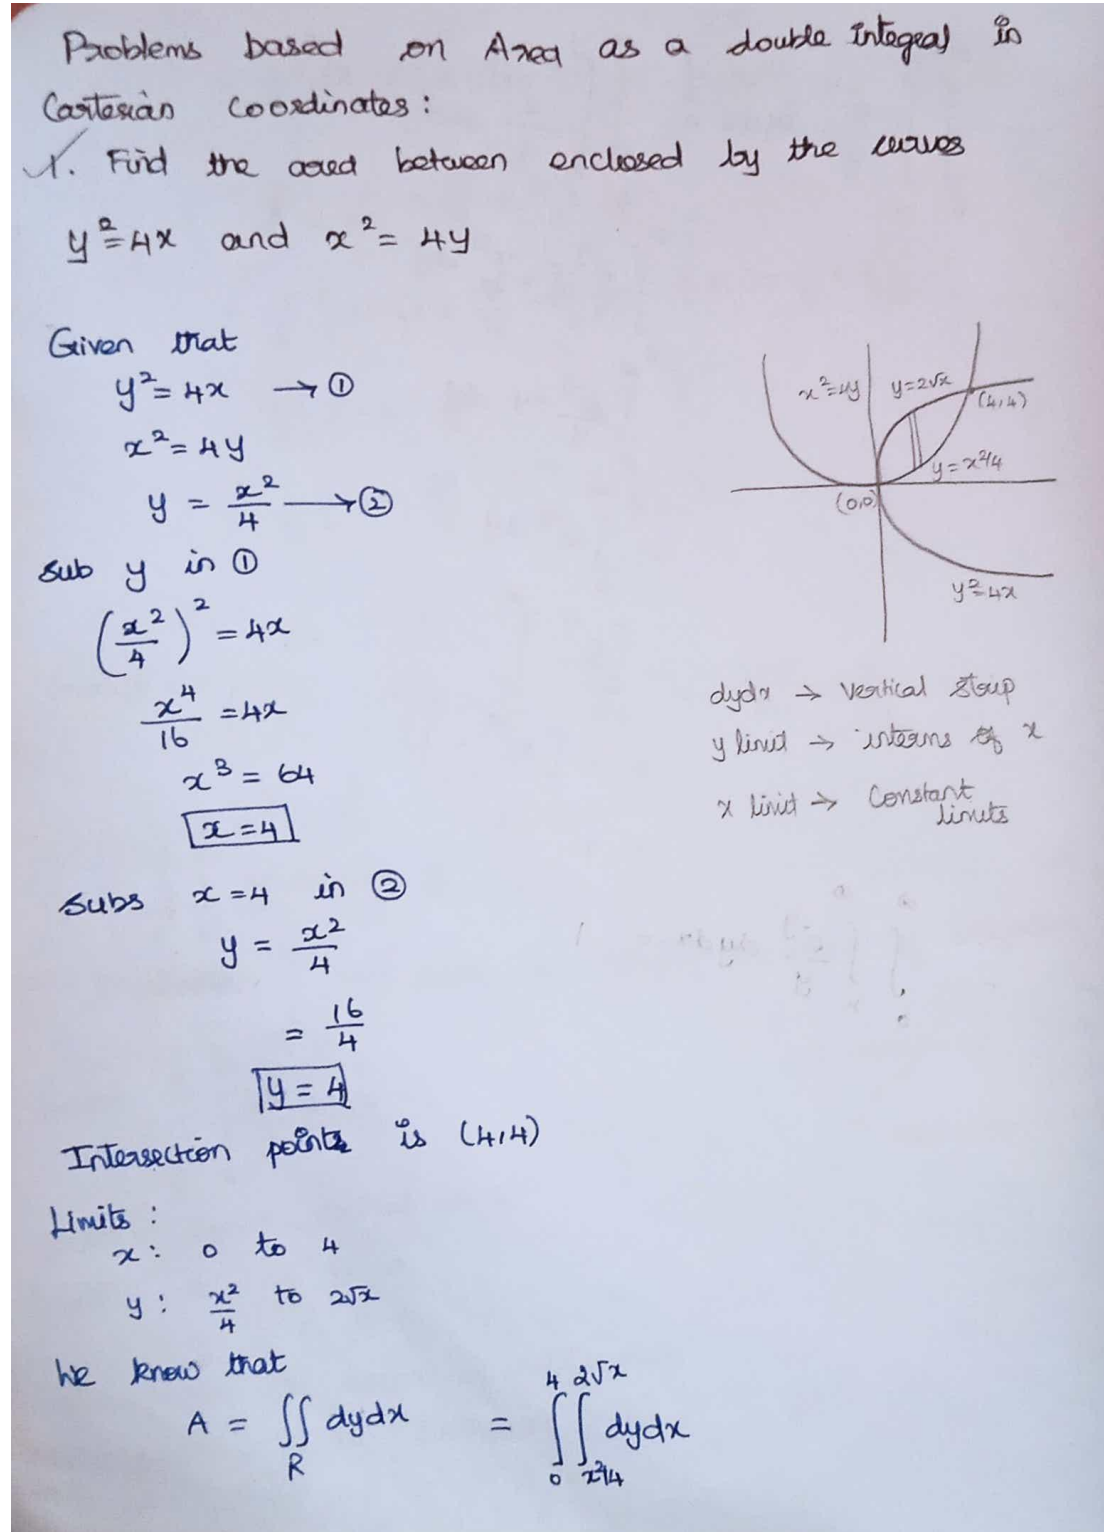 Problems based on Area as a double integral in
Cartesian Coordinates:
1. Find the area between enclosed by the curves
y²=4x and x²=4y
Given that
y²=4x → ①
x²=4y
y = x²/4 → ②
Sub y in ①
(x²/4)² = 4x
x⁴/16 = 4x
x³ = 64
x=4
Subs x=4 in ②
y = x²/4
= 16/4
y=4
Intersection points is (4,4)
Limits:
x: 0 to 4
y: x²/4 to 2√x
We know that
A = ∬_R dydx = ∫₀⁴ ∫_{x²/4}^{2√x} dydx
x²=4y
y=2√x
(4,4)
y=x²/4
(0,0)
y²=4x
dydx → Vertical Strip
y limit → interms of x
x limit → Constant
limits